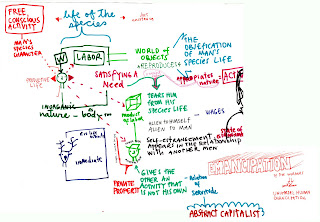 FREE
CONSCIOUS
ACTIVITY
life of the
species
MAN'S
SPECIES
CHARACTER
W
LABOR
WORLD OF
OBJECTS
REPRODUCES
THE
OBJEFICATION
OF MAN'S
SPECIES LIFE
PRODUCTIVE
LIFE
SATISFYING A
NEED
appropriates
nature
INORGANIC
nature - body
TEARS HIM
FROM HIS
SPECIES LIFE
product of labor
WAGES
ALIEN TO HIMSELF
ALIEN TO MAN
SELF-ESTRANGEMENT
APPEARS IN THE RELATIONSHIP
WITH ANOTHER MEN
immediate
GIVES THE
OTHER AN
ACTIVITY THAT
IS NOT HIS OWN
PRIVATE
PROPERTY
Relation
of
Servitude
EMANCIPATION
of the workers
UNIVERSAL HUMAN
EMANCIPATION
ABSTRACT CAPITALIST